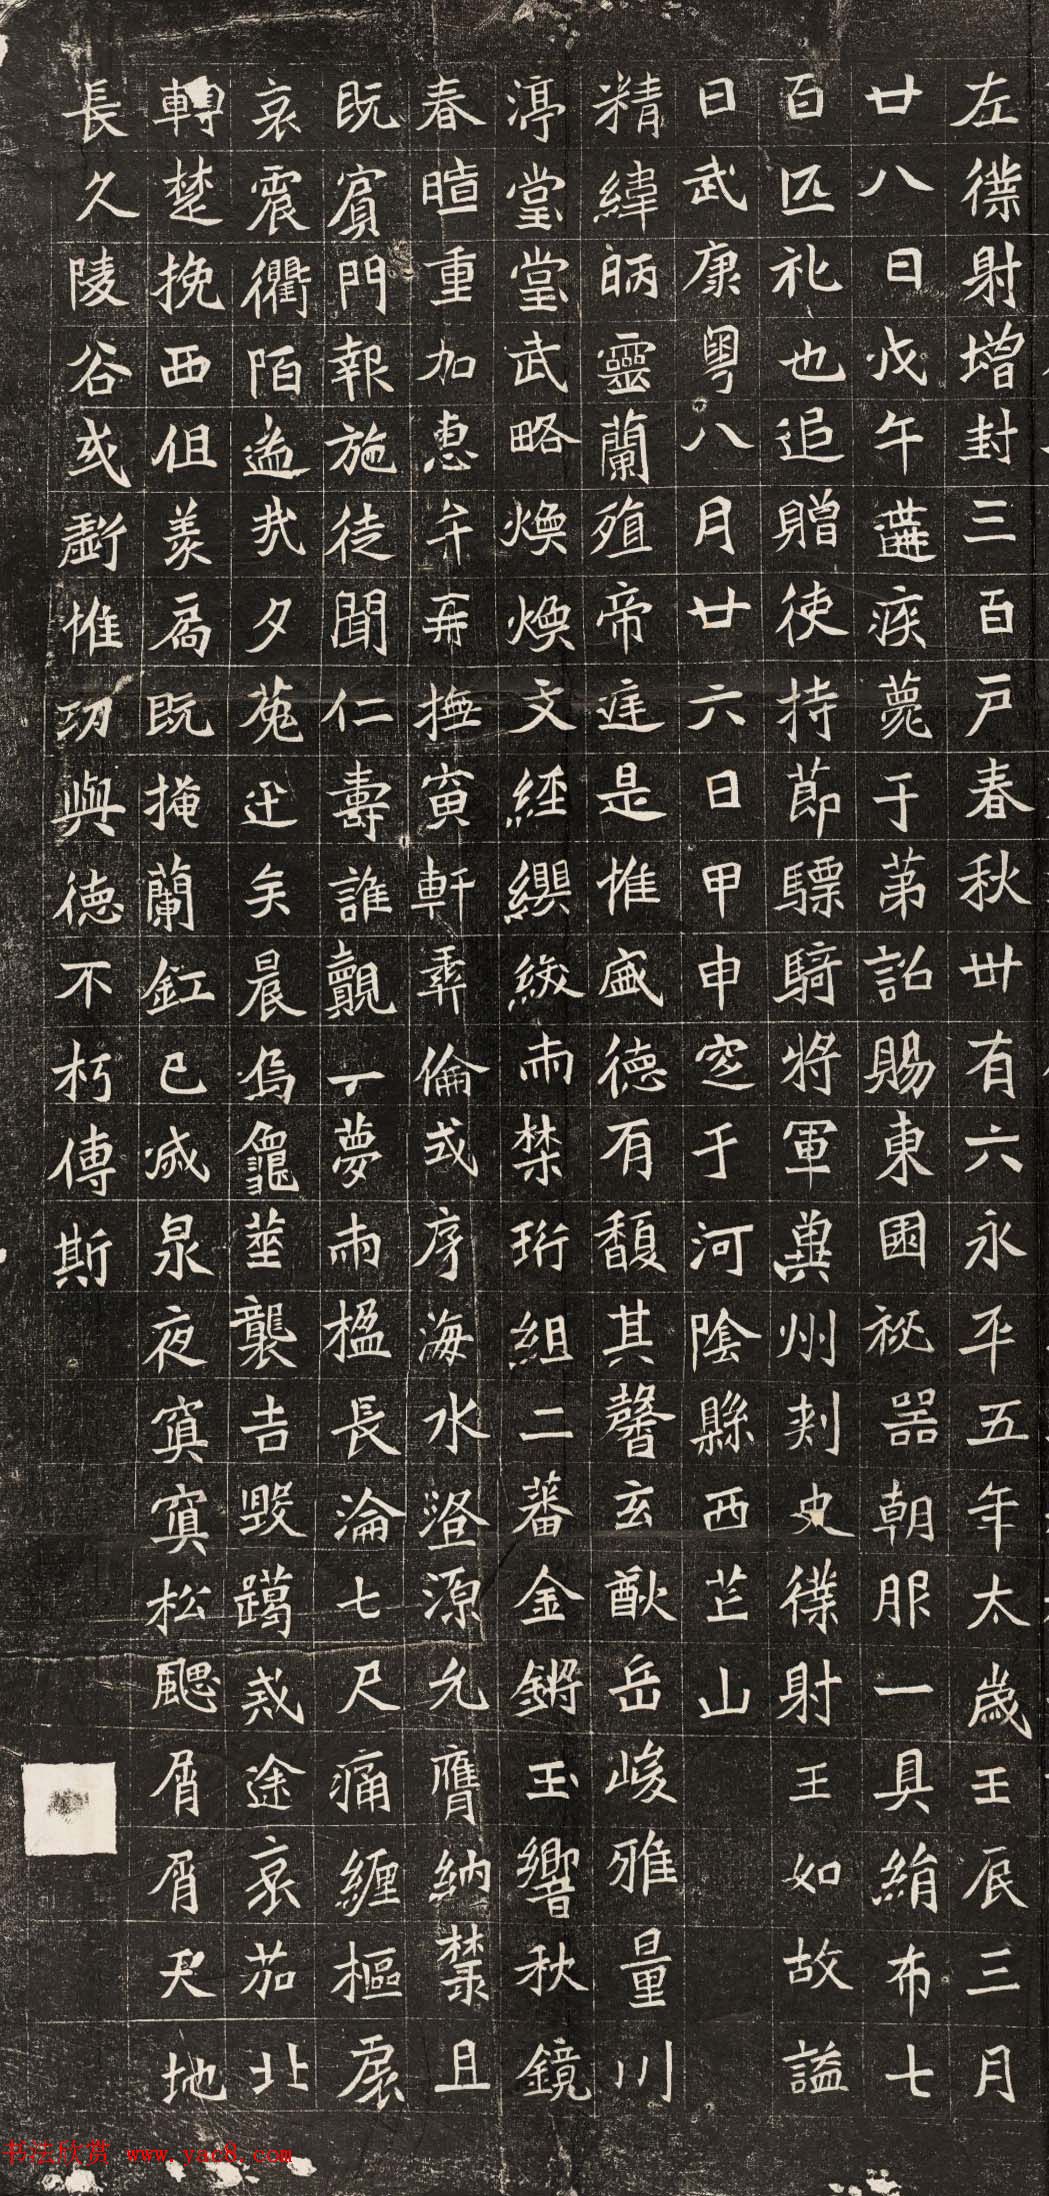 左僕射增封三百戶春秋卅有六永平五年太歲壬辰三月
廿八日戊午遘疾薨于第詔賜東園祕器朝服一具絹布七
百匹礼也追贈使持節驃騎將軍冀州刺史僕射王如故謚
曰武康粵八月廿六日甲申窆于河陰縣西芒山
精緯昞靈蘭殖帝庭是惟盛德有馥其馨玄猷岳峻雅量川
渟堂堂武略煥煥文經纓緌兩禁珩組二蕃金鏘玉響秋鏡
春暄重加惠弁再撫寅軒彝倫式序海水澄源允膺納麓且
既賓門報施徒聞仁壽誰覿一夢兩楹長淪七尺痛纏樞扆
哀震衢陌哉夕菟迅矣晨烏龜筮襲吉毀躅戒途哀笳北
轉楚挽西徂羨扃既掩蘭釭已滅泉夜冥冥松颸屑屑天地
長久陵谷或虧惟功與德不朽傳斯
书法欣赏 www.yac8.com